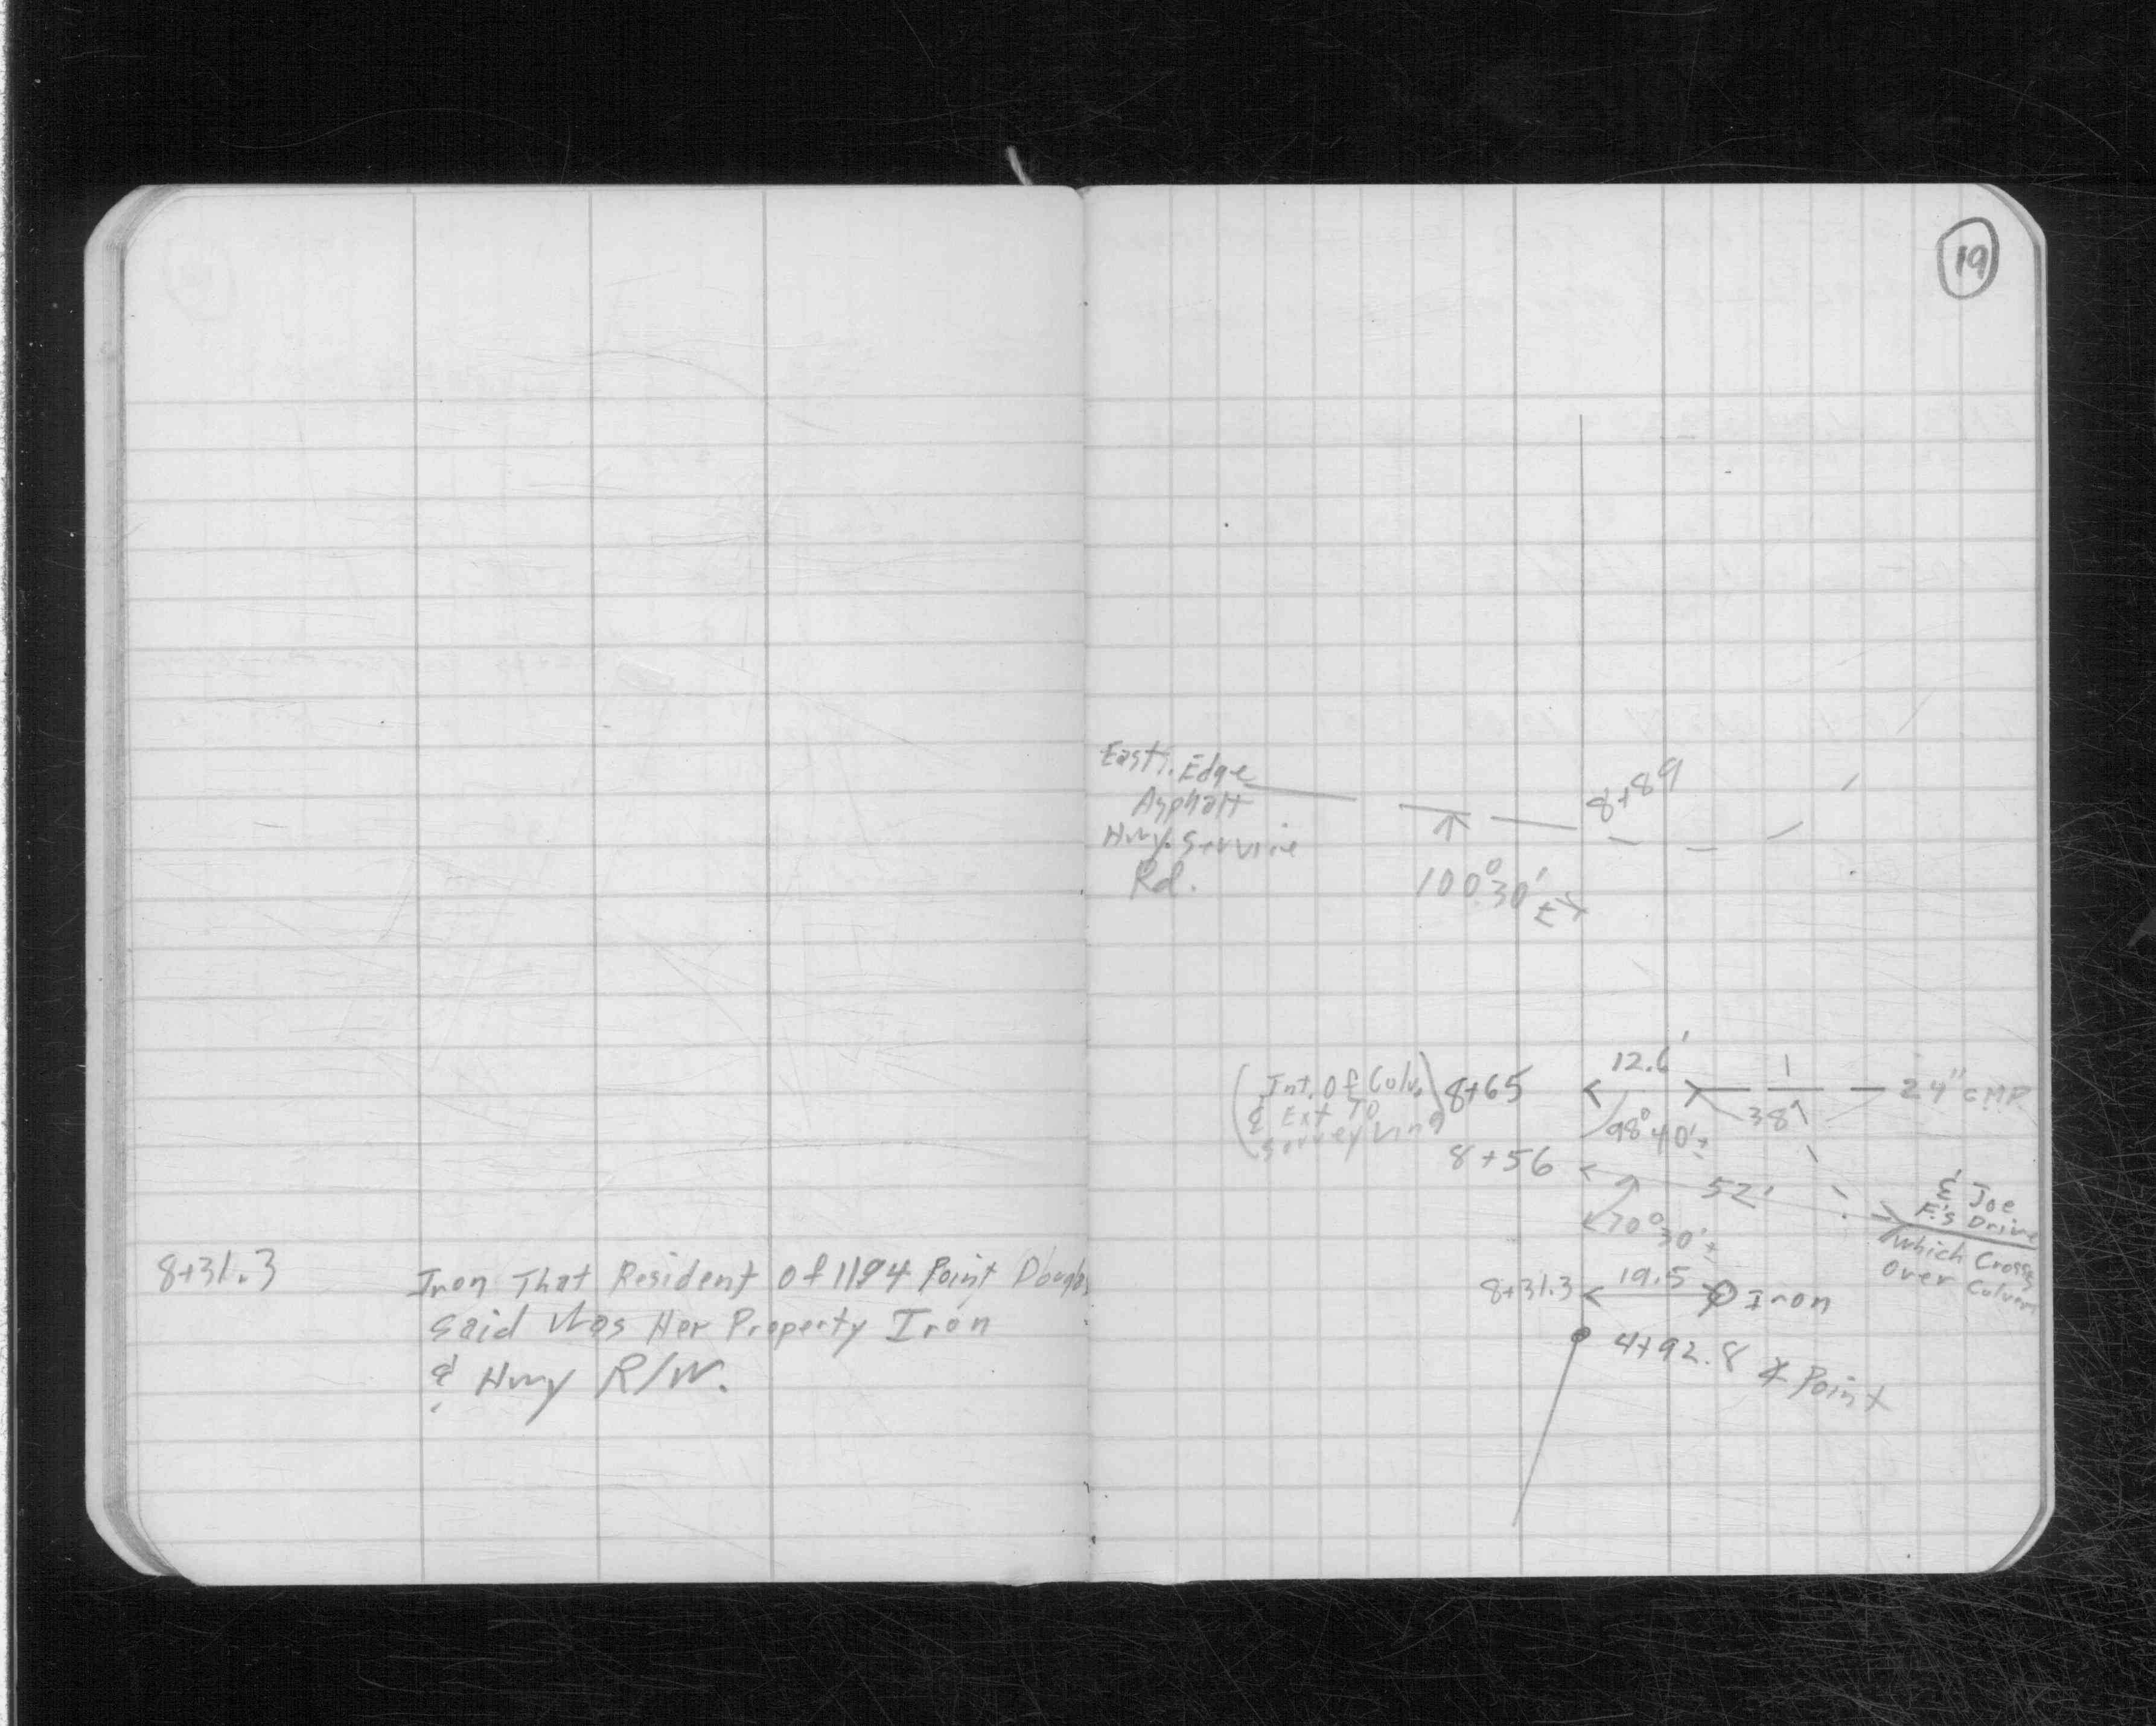 19
8+31.3 Iron That Resident Of 1194 Point Douglas
Said Was Her Property Iron
& Hwy R/W.
East. Edge
Asphalt
Hwy. Service
Rd.
8+89
100°30'±
12.6'
(Int. Of Culv. 8+65
& Ext To
Survey Line)
24" CMP
38'
98°40'±
8+56
52'
70°30'±
₠ Joe
F.'s Drive
Which Crosses
Over Culvert
8+31.3
19.5
Iron
4+92.8 ∡ Point